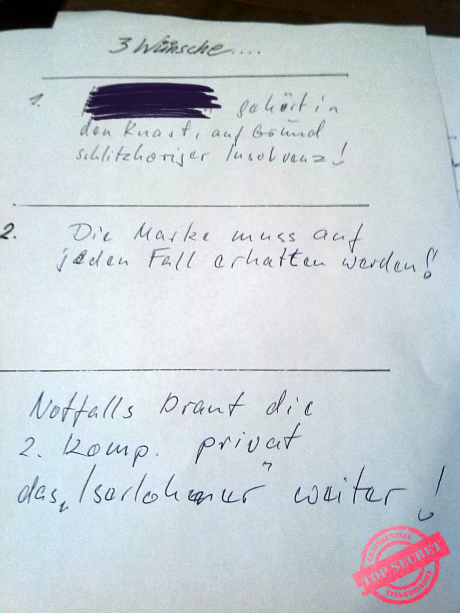 3 Wünsche....
1. gehört in
den Knast, auf Grund
schlitzohriger Insolvenz!
2. Die Marke muss auf
jeden Fall erhalten werden!
Notfalls braut die
2. Komp. privat
das „Iserlohner" weiter!
CONFIDENTIAL
TOP SECRET
CONFIDENTIAL